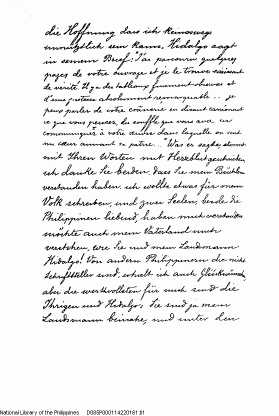 die Hoffnung dass ich keineswegs
unnützlich sein kann, Hidalgo sagt
in seinem Brief: J'ai parcouru quelques
pages de votre ouvrage et je le trouve saisissant
de verité. Il y a des tableaux finement observés et
d'une justesse absolument remarquable... je
peux parler de votre œuvre en disant
ce que vous pensez, le souffle que vous avez
communiqué à votre œuvre dans laquelle on sent
un cœur aimant sa patrie... Was er sagt, stimmt
mit Ihren Worten mit Herzblut geschrieben,
ich danke Sie beiden, dass Sie mein Büchlein
verstanden haben: ich wollte etwas für mein
Volk schreiben, und zwei Seelen, beide die
Philippinen liebend, haben mich verstanden
möchte auch mein Vaterland mich
verstehen, wie Sie und mein Landsmann
Hidalgo! Von andern Philippinern die nicht
Schriftsteller sind, erhielt ich auch Glückwünsche,
aber die wertvollsten für mich sind die
Ihrigen und Hidalgos, Sie sind ja mein
Landsmann beinahe, und unter den
National Library of the Philippines D08SP000114220181.tif